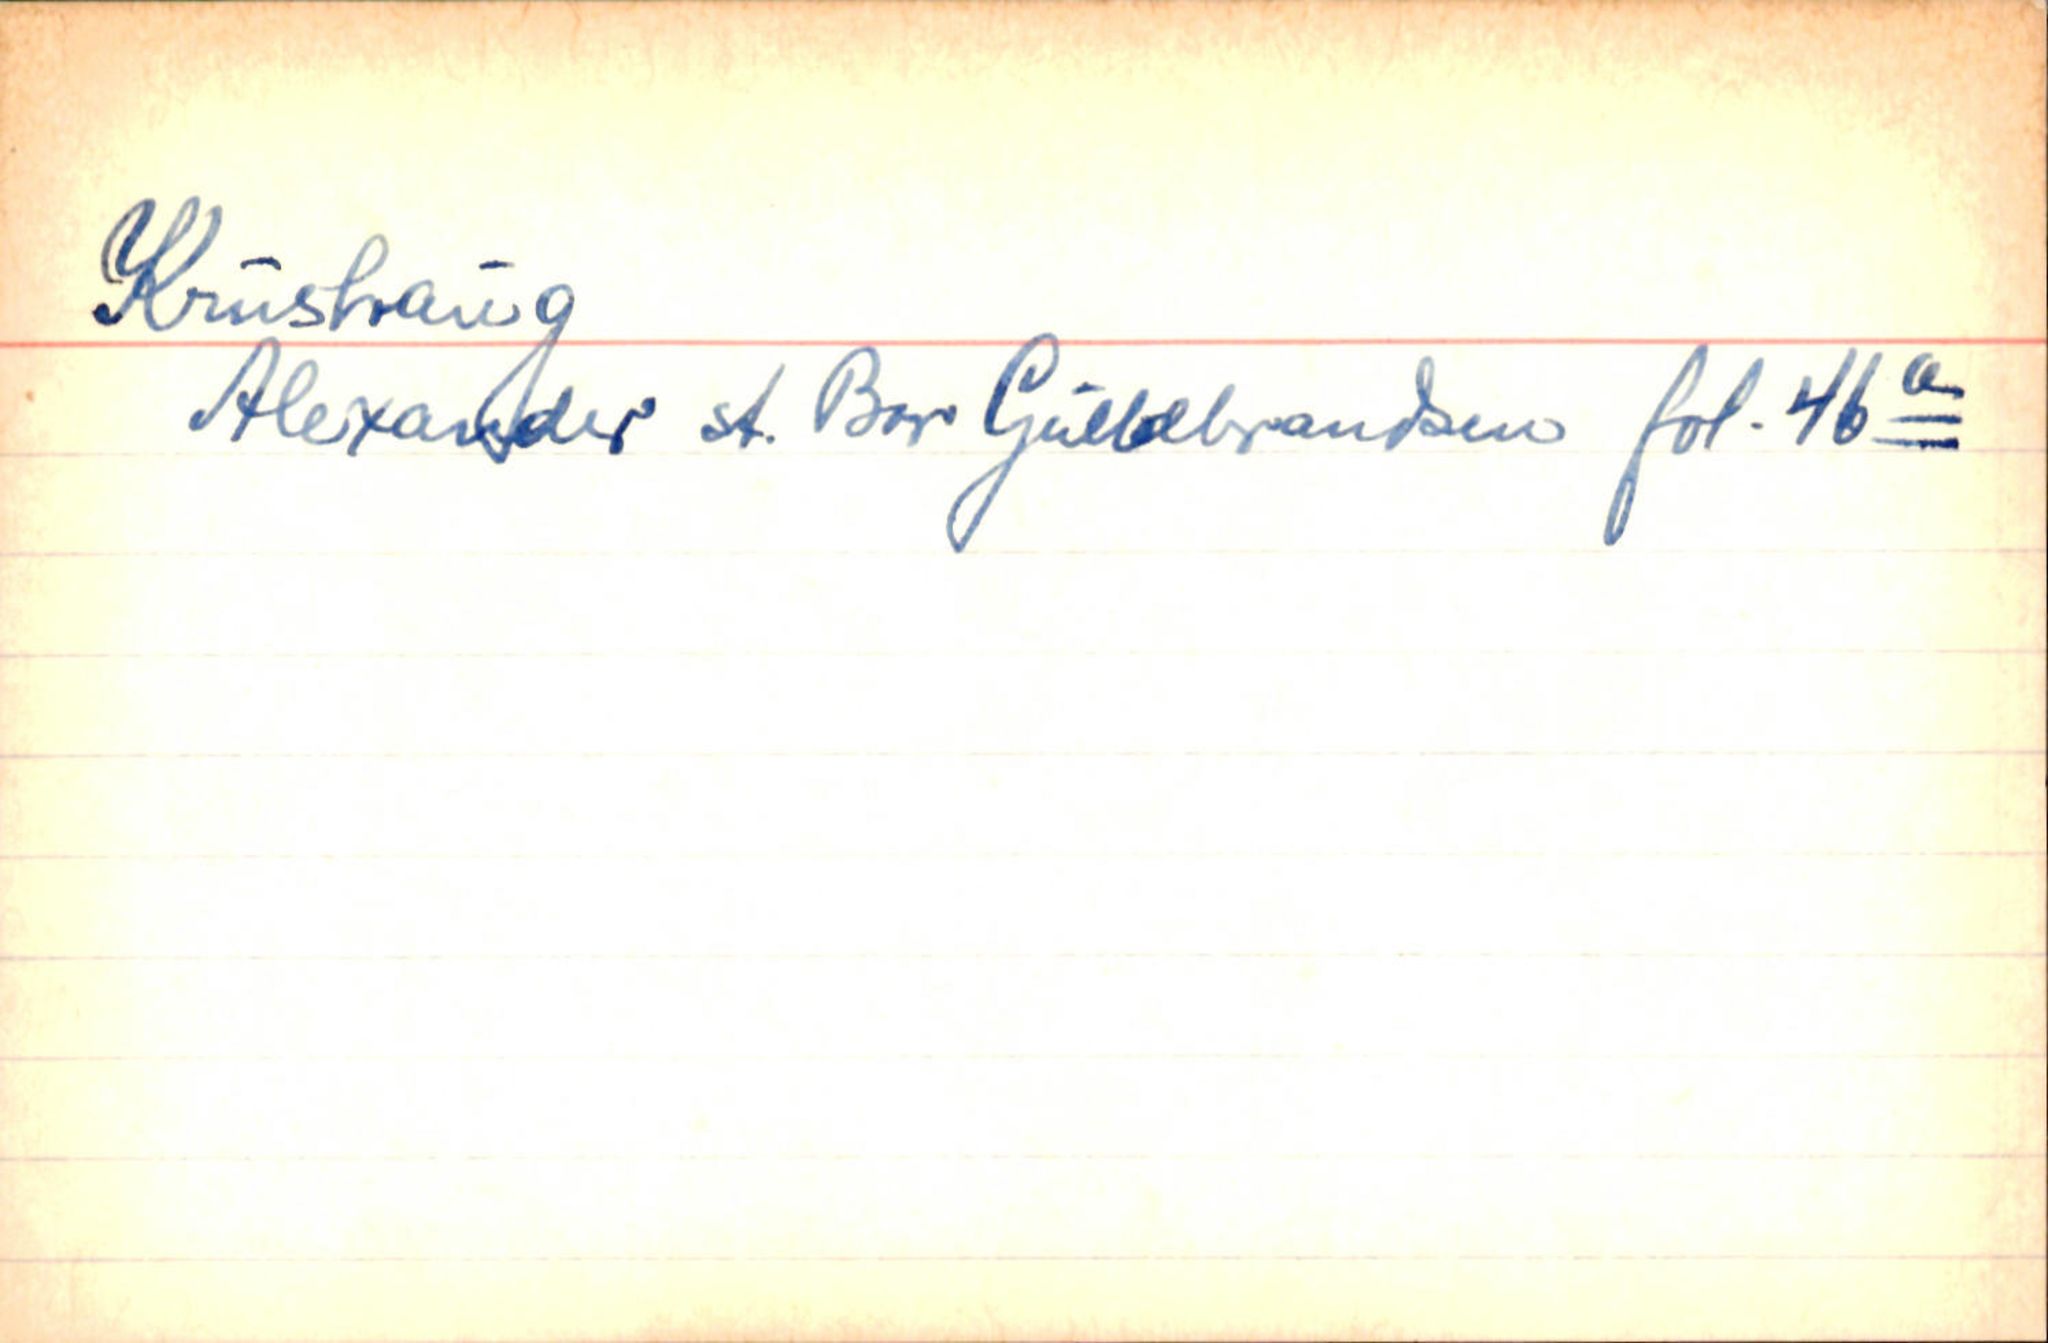 Krustraug
Alexander st. Bor Guldbrandsen fol. 46a